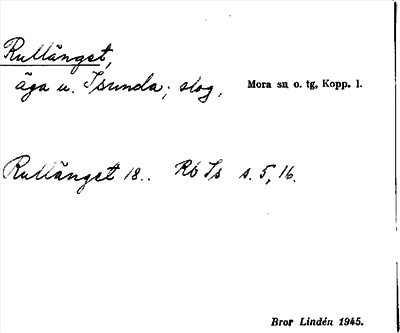 Rullänget,
äga u. Isunda; slog, Mora sn o. tg, Kopp. l.
Rullänget 18.. Rb Is s. 5, 16.
Bror Lindén 1945.